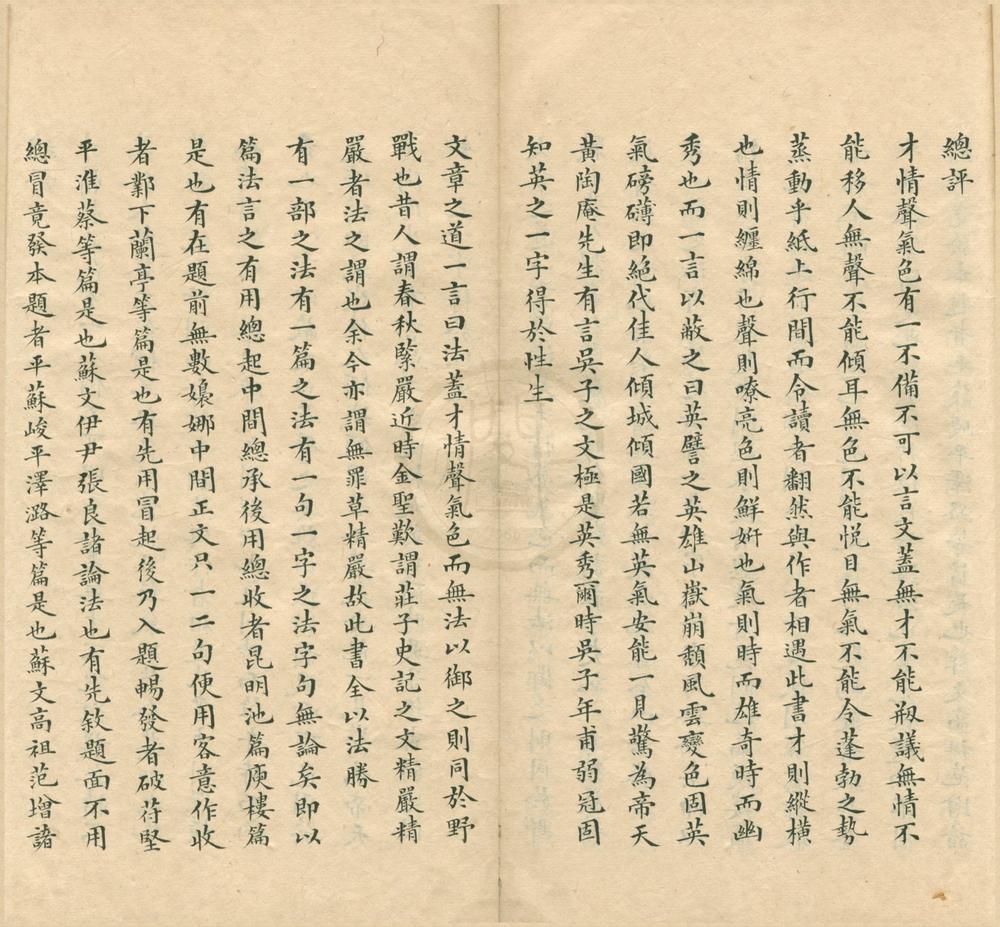 總評
才情聲氣色有一不備不可以言文蓋無才不能刱議無情不
能移人無聲不能傾耳無色不能悅目無氣不能令蓬勃之勢
蒸動乎紙上行間而令讀者翻然與作者相遇此書才則縱橫
也情則纏綿也聲則嘹亮色則鮮妍也氣則時而雄奇時而幽
秀也而一言以蔽之曰英譬之英雄山嶽崩頹風雲變色固英
氣磅礴即絕代佳人傾城傾國若無英氣安能一見驚為帝天
黃陶庵先生有言吳子之文極是英秀爾時吳子年甫弱冠固
知英之一字得於性生
文章之道一言曰法蓋才情聲氣色而無法以御之則同於野
戰也昔人謂春秋緊嚴近時金聖歎謂莊子史記之文精嚴精
嚴者法之謂也余今亦謂無罪草精嚴故此書全以法勝
有一部之法有一篇之法有一句一字之法字句無論矣即以
篇法言之有用總起中間總承後用總收者昆明池篇庾樓篇
是也有在題前無數嬝娜中間正文只一二句便用客意作收
者鄴下蘭亭等篇是也有先用冒起後乃入題暢發者破苻堅
平淮蔡等篇是也蘇文伊尹張良諸論法也有先敘題面不用
總冒竟發本題者平蘇峻平澤潞等篇是也蘇文高祖范增諸